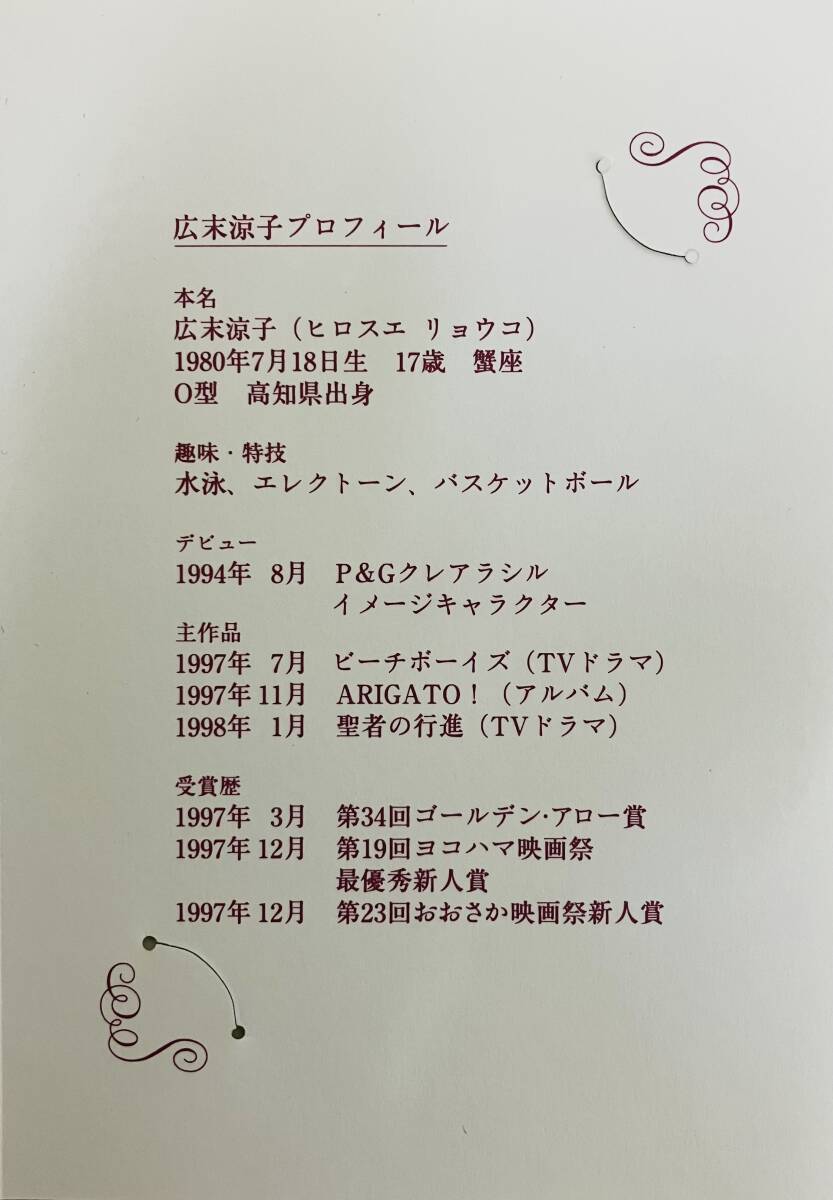 広末涼子プロフィール
本名
広末涼子（ヒロスエ リョウコ）
1980年7月18日生　17歳　蟹座
O型　高知県出身
趣味・特技
水泳、エレクトーン、バスケットボール
デビュー
1994年 8月　P&Gクレアラシル
イメージキャラクター
主作品
1997年 7月　ビーチボーイズ（TVドラマ）
1997年11月　ARIGATO！（アルバム）
1998年 1月　聖者の行進（TVドラマ）
受賞歴
1997年 3月　第34回ゴールデン・アロー賞
1997年12月　第19回ヨコハマ映画祭
最優秀新人賞
1997年12月　第23回おおさか映画祭新人賞